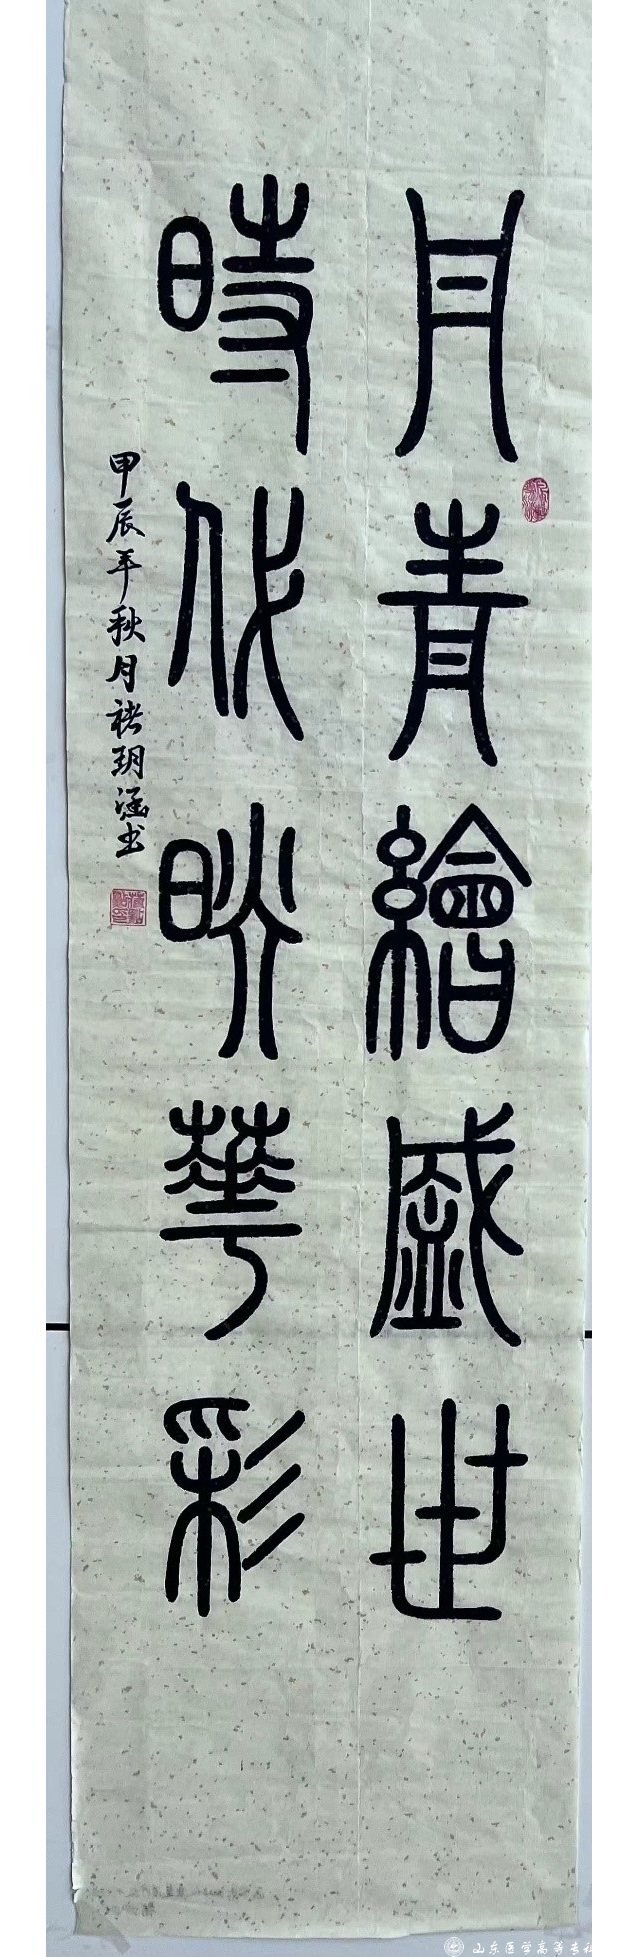 月青繪盛世
時代映華彩
甲辰年秋月褚玥涵书
山东医学高等专科